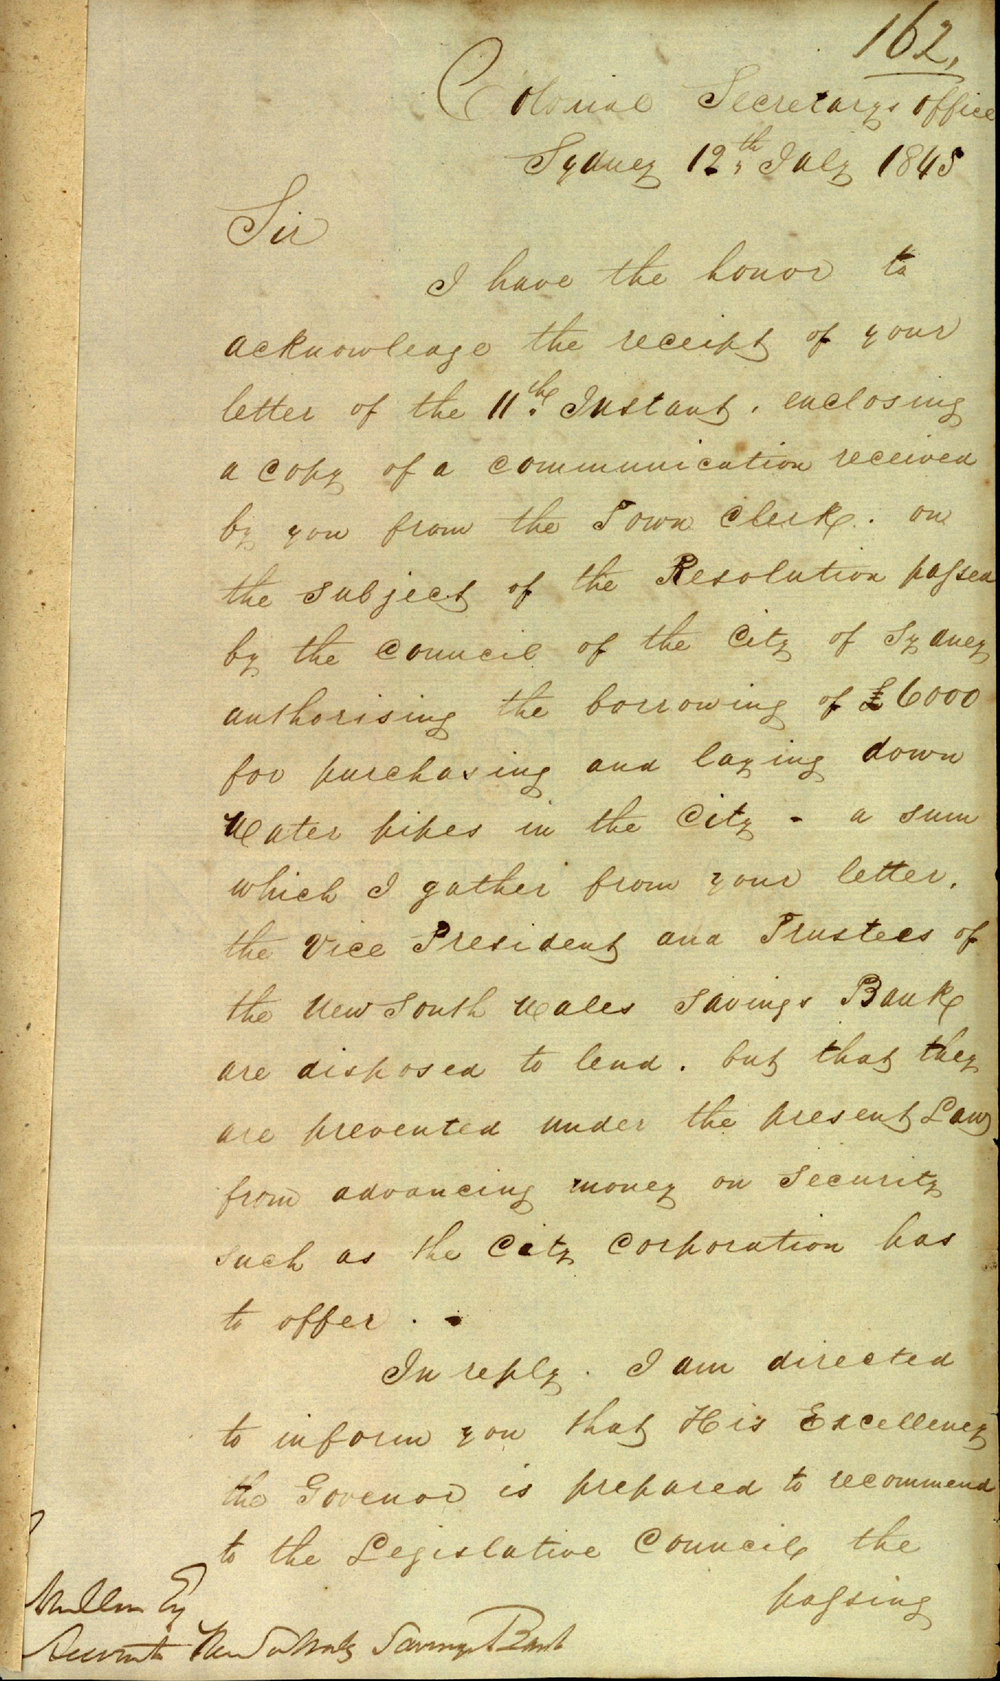 162,
Colonial Secretarys Office
Sydney 12th July 1845
Sir
I have the honor to
acknowledge the receipt of your
letter of the 11th Instant. enclosing
a copy of a communication received
by you from the Town Clerk. on
the subject of the Resolution passed
by the Council of the City of Sydney
authorising the borrowing of £6000
for purchasing and laying down
Water pipes in the City - a sum
which I gather from your letter.
the Vice President and Trustees of
the New South Wales Savings Bank
are disposed to lend. but that they
are prevented under the present Law
from advancing money on Security
such as the City Corporation has
to offer. -
In reply. I am directed
to inform you that His Excellency
the Govenor is prepared to recommend
to the Legislative Council the
passing
Esq
New So Wales Savings Bank